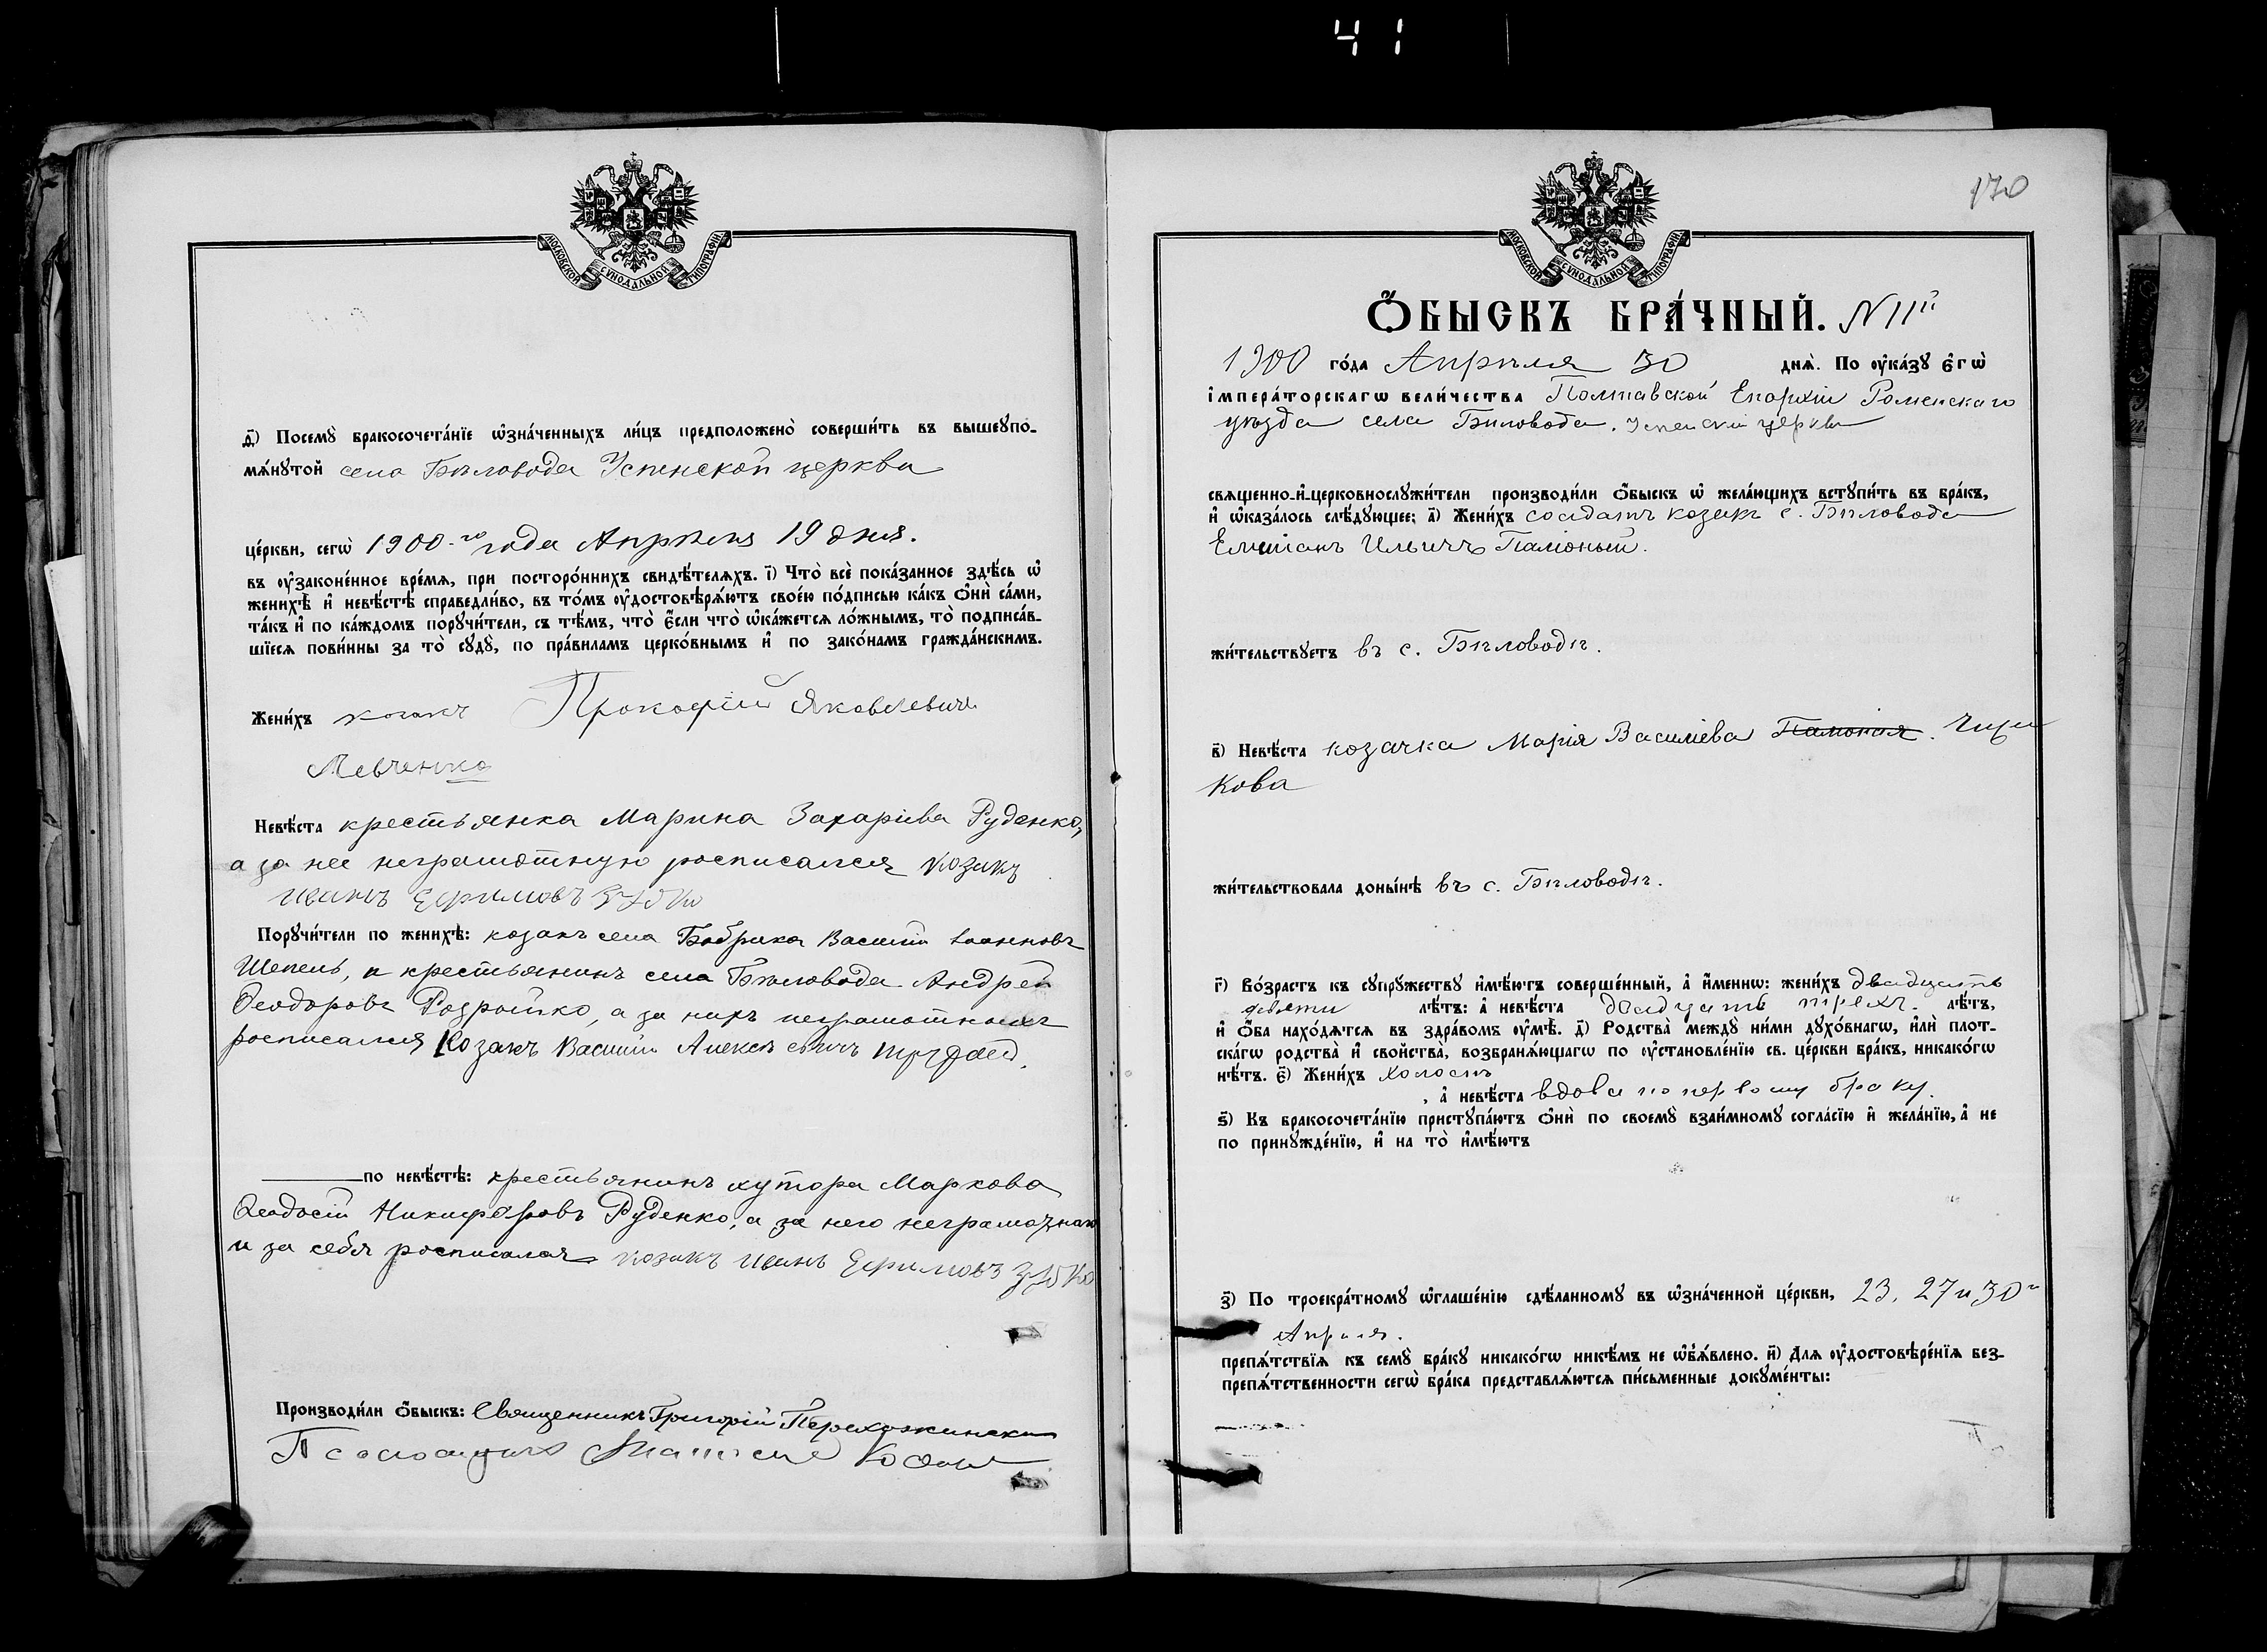 41
МОСКОВСКОЙ СѴНОДАЛЬНОЙ ТИПОГРАФІИ.
ѳ҃) Посемꙋ̀ бракосочета́нїе ѡ҆зна́ченныхъ ли́цъ предположено̀ соверши́ть въ вышеупо-
мѧ́нꙋтой села Бѣловода Успенской церкви
це́ркви, сегѡ̀ 1900-го года Апрѣля 19 дня.
въ ᲂу҆законе́нное вре́мѧ, при посторо́ннихъ свидѣ́телѧхъ. і҃) Что̀ всѐ пока́занное здѣ́сь ѡ҆
женихѣ̀ и҆ невѣ́стѣ справедли́во, въ то́мъ ᲂу҆достовѣрѧ́ютъ свое́ю по́дписью ка́къ ѻ҆нѝ са́ми,
та́къ и҆ по ка́ждомъ порꙋчи́тели, съ тѣ́мъ, что̀ є҆́сли что̀ ѡ҆ка́жетсѧ ло́жнымъ, то̀ подписа́в-
шїесѧ пови́нны за то̀ сꙋдꙋ̀, по пра́виламъ церко́внымъ и҆ по зако́намъ гражда́нскимъ.
Жени́хъ козакъ Прокофій Яковлевичъ
Левченко
Невѣ́ста крестьянка Марина Захаріева Руденко,
а за нее неграмотную росписался козакъ
иванъ Ефимовъ
Порꙋчи́тели по женихѣ̀: козакъ села Бобрика Василій Іоанновъ
Шепель, и крестьянинъ села Бѣловода Андрей
Ѳеодоровъ, а за нихъ неграмотныхъ
росписался Козакъ Василій Алексѣевичъ
по невѣ́стѣ: крестьянинъ хутора Маркова
Ѳеодосій Никифоровъ Руденко, а за него неграмотнаго
и за себя росписался козакъ иванъ Ефимовъ
Производи́ли ѻ҆́быскъ: Священникъ Григорій
Псаломщикъ
170
МОСКОВСКОЙ СѴНОДАЛЬНОЙ ТИПОГРАФІИ.
Ѻ҆́БЫСКЪ БРА́ЧНЫЙ. N 11й
1900 го́да Апрѣля 30 днѧ̀. По ᲂу҆ка́зꙋ є҆гѡ̀
і҆мпера́торскагѡ вели́чества Полтавской Епархіи Роменскаго
уѣзда села Бѣловода. Успенской церкви
свѧще́нно-и҆-церковнослꙋжи́тели производи́ли ѻ҆́быскъ ѡ҆ жела́ющихъ встꙋпи́ть въ бра́къ,
и҆ ѡ҆каза́лось слѣ́дꙋющее: а҃) Жени́хъ солдатъ козакъ с. Бѣловода
Емиліанъ Ильичъ
жи́тельствꙋетъ въ с. Бѣловодѣ.
в҃) Невѣ́ста козачка Марія Василіева
кова
жи́тельствовала доны́нѣ въ с. Бѣловодѣ.
г҃) Во́зрастъ къ сꙋпрꙋ́жествꙋ и҆мѣ́ютъ соверше́нный, а҆ и҆́менню: жени́хъ двадцать
девяти лѣ́тъ: а҆ невѣ́ста двадцать трехъ. лѣ́тъ,
и҆ ѻ҆́ба нахо́дѧтсѧ въ здра́вомъ ᲂу҆мѣ̀. д҃) Родства̀ междꙋ ни́ми дꙋхо́внагѡ, и҆лѝ плот-
ска́гѡ родства̀ и҆ сво́йства, возбранѧ́ющагѡ по ᲂу҆становле́нїю св. це́ркви бра́къ, никако́гѡ
нѣ́тъ. є҃) Жени́хъ холостъ
, а҆ невѣ́ста вдова по первому браку.
ѕ҃) Къ бракосочета́нїю пристꙋпа́ютъ ѻ҆нѝ по своемꙋ̀ взаи́мномꙋ согла́сїю и҆ жела́нїю, а҆ не
по принꙋжде́нїю, и҆ на то̀ и҆мѣ́ютъ
з҃) По троекра́тномꙋ ѡ҆глаше́нїю сдѣ́ланномꙋ въ ѡ҆зна́ченной це́ркви, 23, 27 и 30го
Апрѣля.
препѧ́тствїѧ къ семꙋ̀ бра́кꙋ никако́гѡ никѣ́мъ не ѡ҆б̾ѧ́влено. и҃) Длѧ ᲂу҆достовѣре́нїѧ без-
препѧ́тственности сегѡ̀ бра́ка представлѧ́ютсѧ пи́сьменные докꙋме́нты: